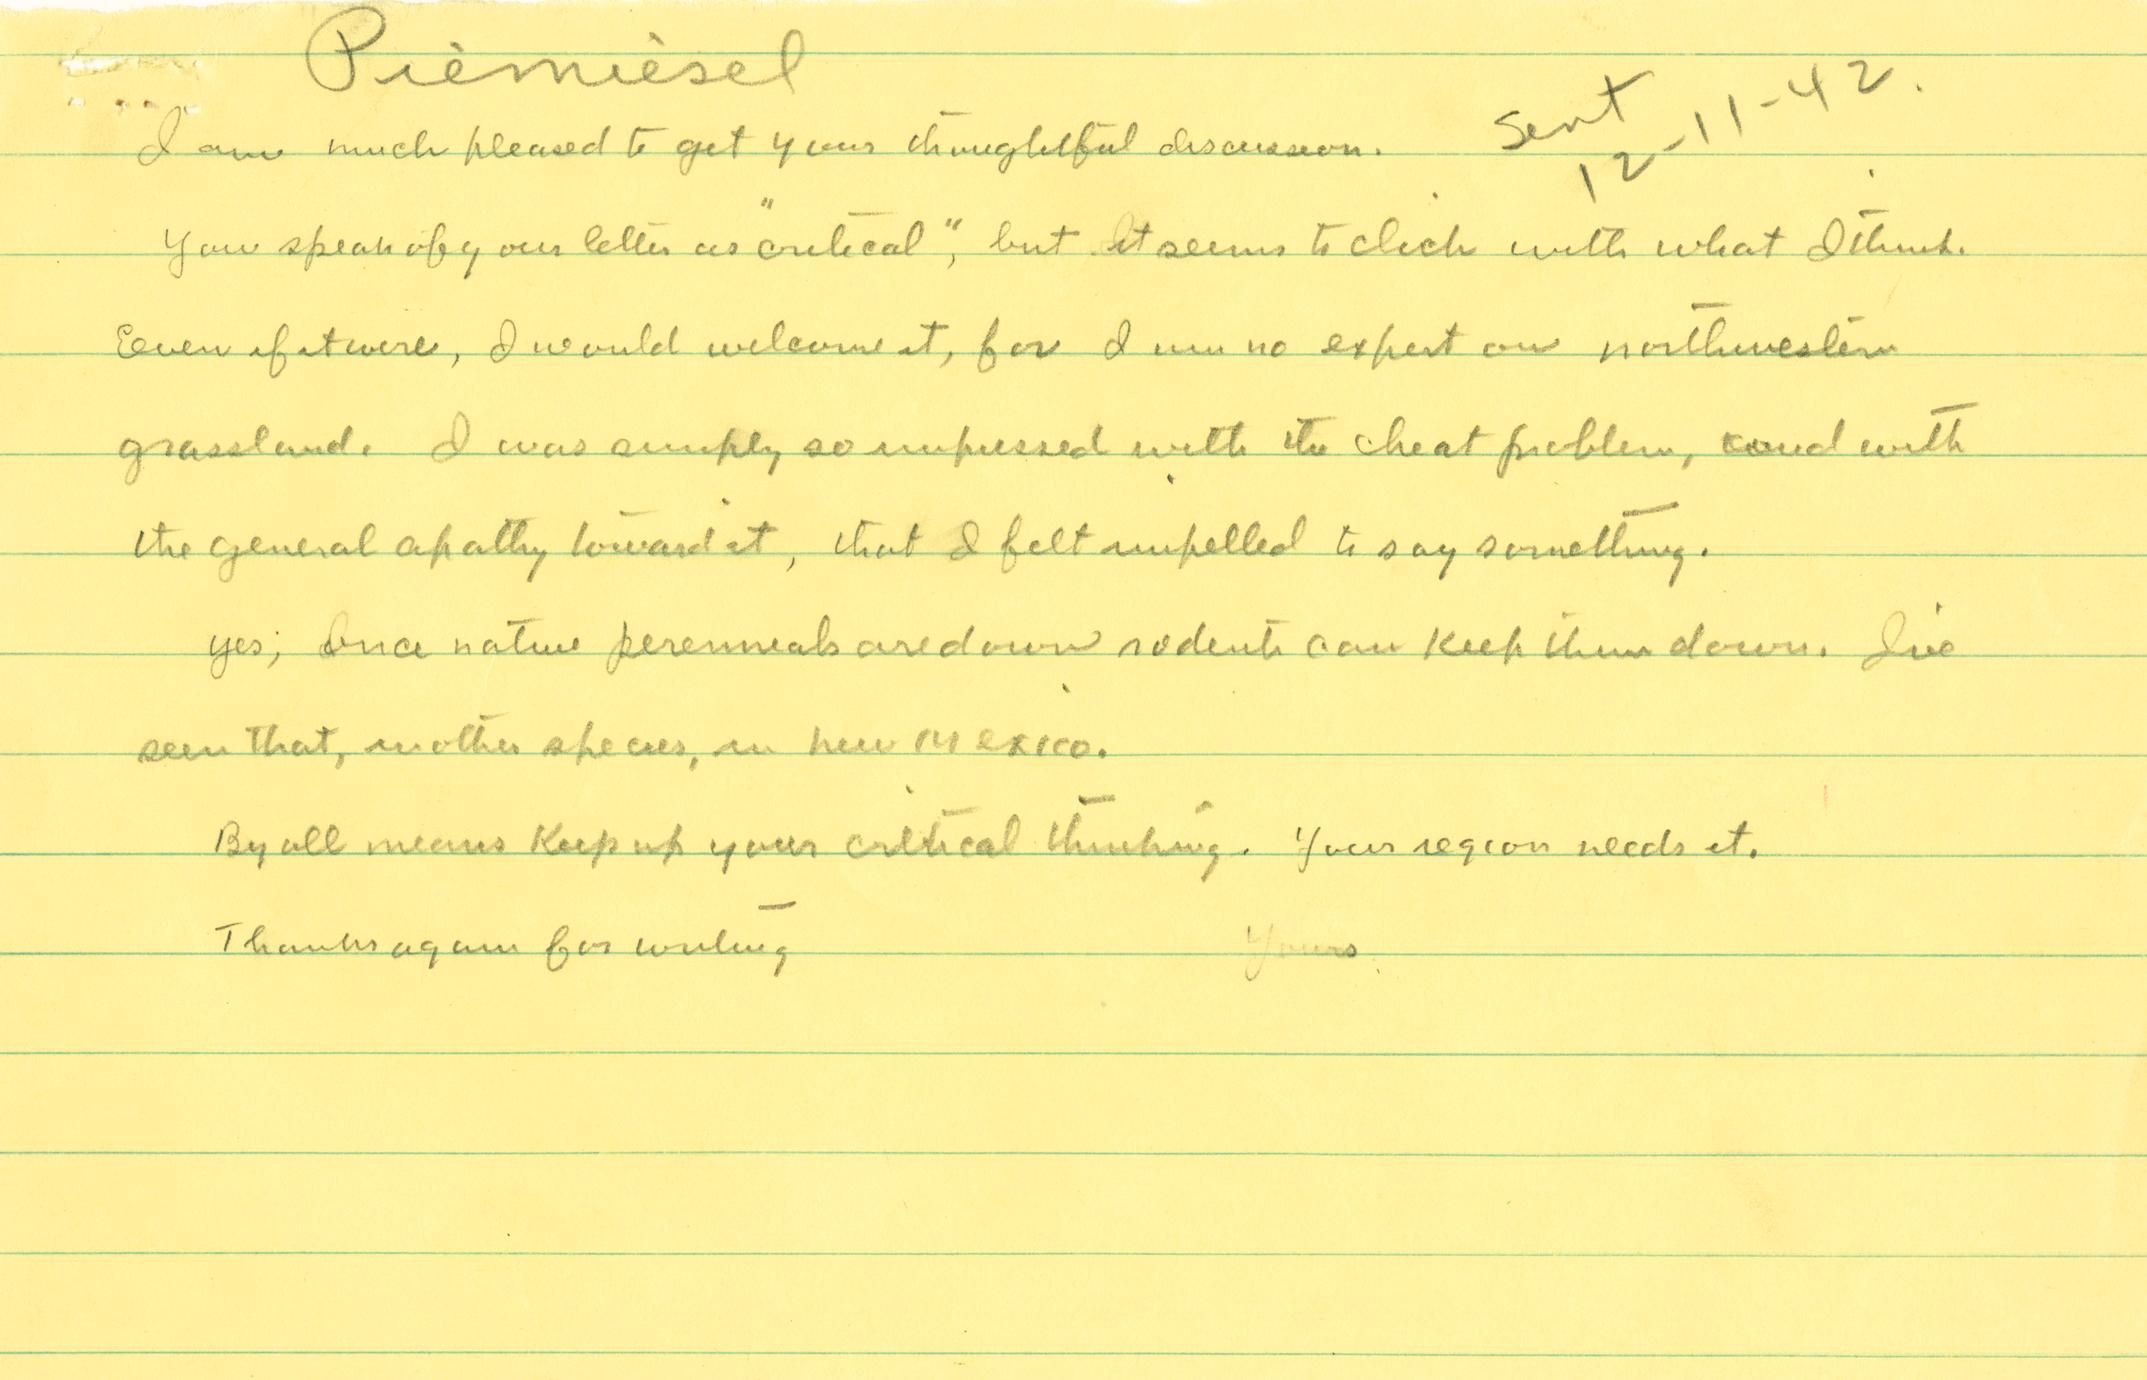 Piemiesel
Sent
12-11-42.
I am much pleased to get your thoughtful discussion.
You speak of your letter as "critical", but it seems to click with what I think.
Even if it were, I would welcome it, for I am no expert on northwestern
grassland. I was simply so impressed with the cheat problem, and with
the general apathy toward it, that I felt impelled to say something.
Yes, once native perennials are down rodents can keep them down. I've
seen that, in other species, in New Mexico.
By all means keep up your critical thinking. Your region needs it.
Thanks again for writing
Yours